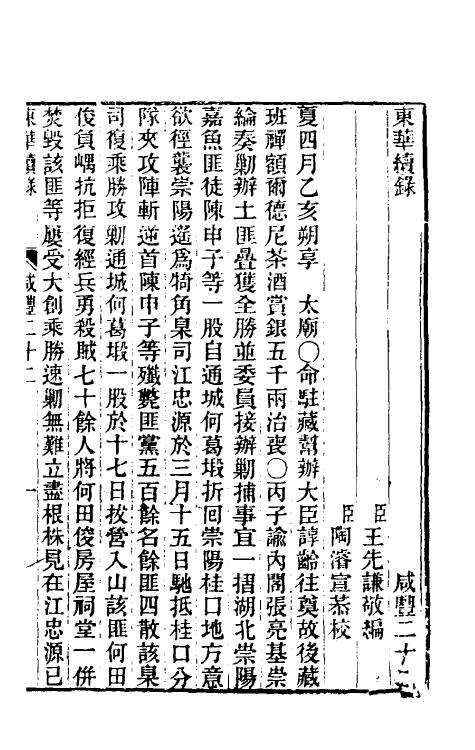 東華續錄
咸豐二十二
臣王先謙敬編
臣陶濬宣恭校
夏四月乙亥朔享　太廟〇命駐藏幫辦大臣諄齡往奠故後藏
班禪額爾德尼茶酒賞銀五千兩治喪〇丙子諭內閣張亮基崇
綸奏勦辦土匪疊獲全勝並委員接辦勦捕事宜一摺湖北崇陽
嘉魚匪徒陳申子等一股自通城何葛塅折回崇陽桂口地方意
欲徑襲崇陽遙為犄角臬司江忠源於三月十五日馳抵桂口分
隊夾攻陣斬逆首陳申子等殲斃匪黨五百餘名餘匪四散該臬
司復乘勝攻勦通城何葛塅一股於十七日拔營入山該匪何田
俊負嵎抗拒復經兵勇殺賊七十餘人將何田俊房屋祠堂一併
焚毀該匪等屢受大創乘勝速勦無難立盡根株見在江忠源已
東華續錄
咸豐二十二
一